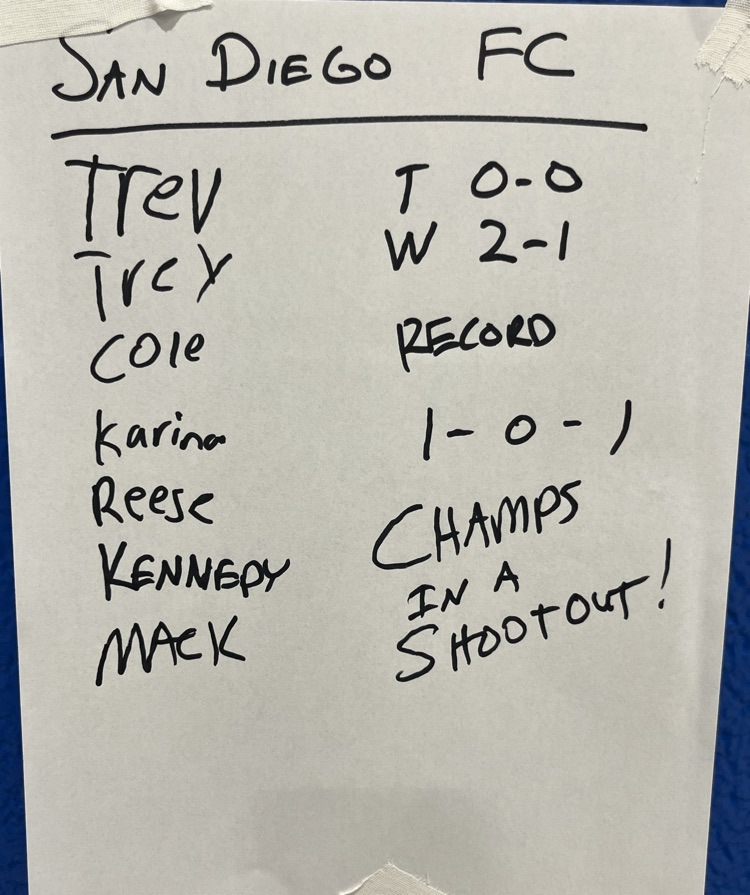 SAN DIEGO FC
Trev
Trey
Cole
Karina
Reese
KENNEDY
MACK
T 0-0
W 2-1
RECORD
1-0-1
CHAMPS
IN A
SHOOTOUT!